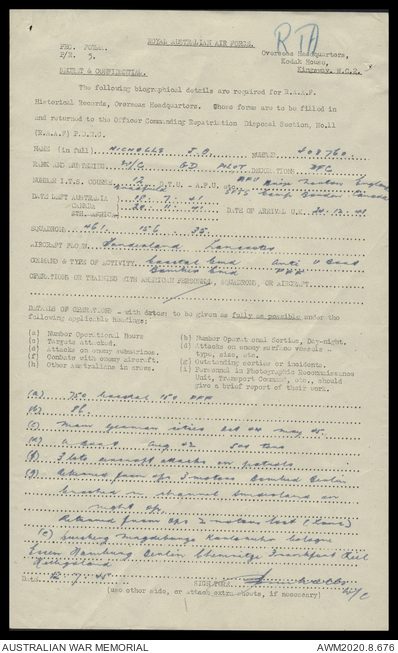 ROYAL AUSTRALIAN AIR FORCE.
RTA
PRO. FORMA.
P/2. 5.
Overseas Headquarters,
Kodak House,
Kingsway, W.C.2.
SECRET & CONFIDENTIAL.
The following biographical details are required for R.A.A.F.
Historical Records, Overseas Headquarters. These forms are to be filled in
and returned to the Officer Commanding Repatriation Disposal Section, No.11
(R.A.A.F) P.D.R.C.
NAME (in full) NICHOLLS J.C. NUMBER 408760
RANK AND MUSTERING W/C GD PILOT DECORATIONS DFC
NUMBER I.T.S. COURSE 12
DATE LEFT AUSTRALIA
CANADA
STH. AFRICA
DATE OF ARRIVAL U.K.
SQUADRONS 461. 156. 35.
AIRCRAFT FLOWN. Sunderland Lancaster
COMMAND & TYPE OF ACTIVITY. Coastal Cmd Anti U Boat
Bomber Cmd PFF
OPERATIONS OR TRAINING WITH AMERICAN PERSONNEL, SQUADRONS, OR AIRCRAFT.
DETAILS OF OPERATIONS - with dates: to be given as fully as possible under the
following applicable Headings:
(a) Number Operational Hours
(b) Number Operational Sorties, Day-night.
(c) Targets attacked.
(d) Attacks on enemy surface vessels -
type, size, etc.
(e) Attacks on enemy submarines.
(f) Combats with enemy aircraft.
(g) Outstanding sorties or incidents.
(h) Other Australians in crews.
(i) Personnel in Photographic Reconnaissance
Unit, Transport Command, etc., should
give a brief report of their work.
(a) 750 coastal 150 PFF
(b) 86.
(c) Main German cities Oct 44 May 45.
U Boat Aug 42 500 tons
(f) 3 lots aircraft attacks on patrols
(g) Returned from ops 3 motors bombed Berlin
in channel Sunderland on
night op.
Returned from ops 2 motors lost
(c) Magdeburg Karlsruhe Cologne
Essen Hamburg Berlin Chemnitz Frankfurt Kiel
Heligoland
Date. 7. 45
SIGNATURE W/C
(use other side, or attach extra sheets, if necessary)
AUSTRALIAN WAR MEMORIAL
AWM2020.8.676